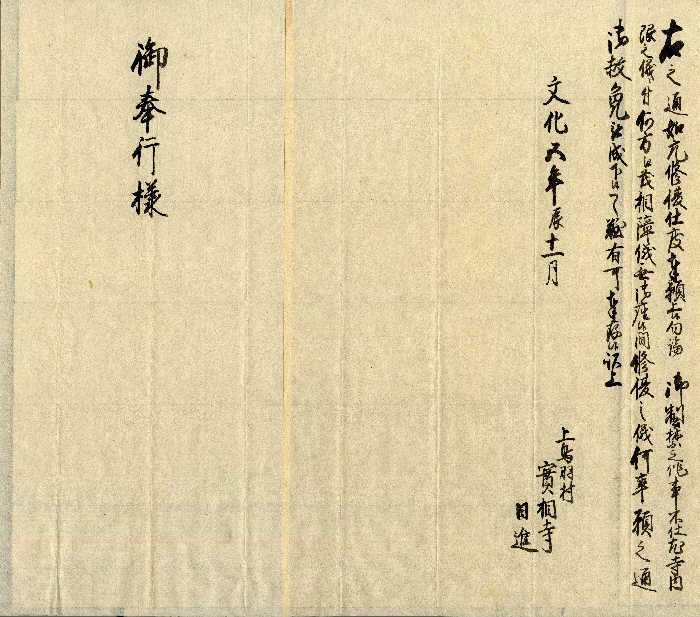 右之通如元修復仕度奉願上候勿論 御制禁之作事不仕尤寺内
限之儀ニ付何方江茂相障儀無御座候間修復之儀何卒願之通
御赦免被成下候ハヽ難有可奉存候以上
文化五年辰十一月
上鳥羽村
實相寺
日進
御奉行様